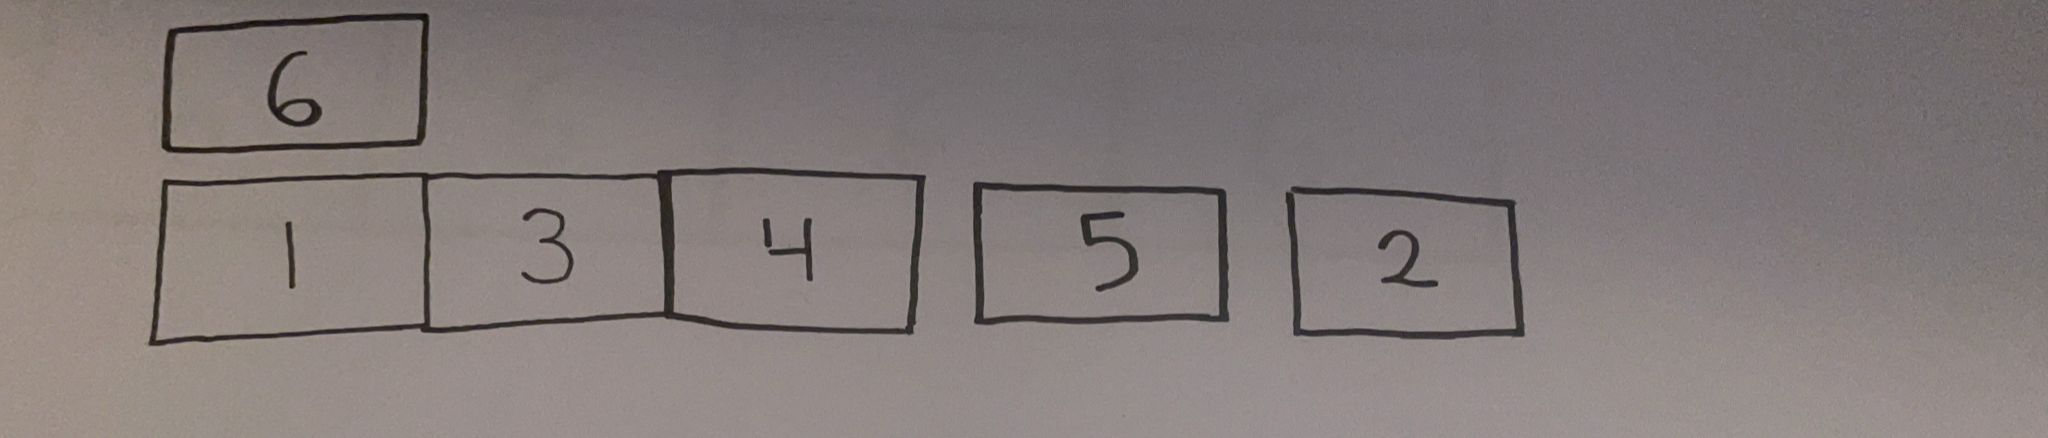 6
1 3 4 5 2